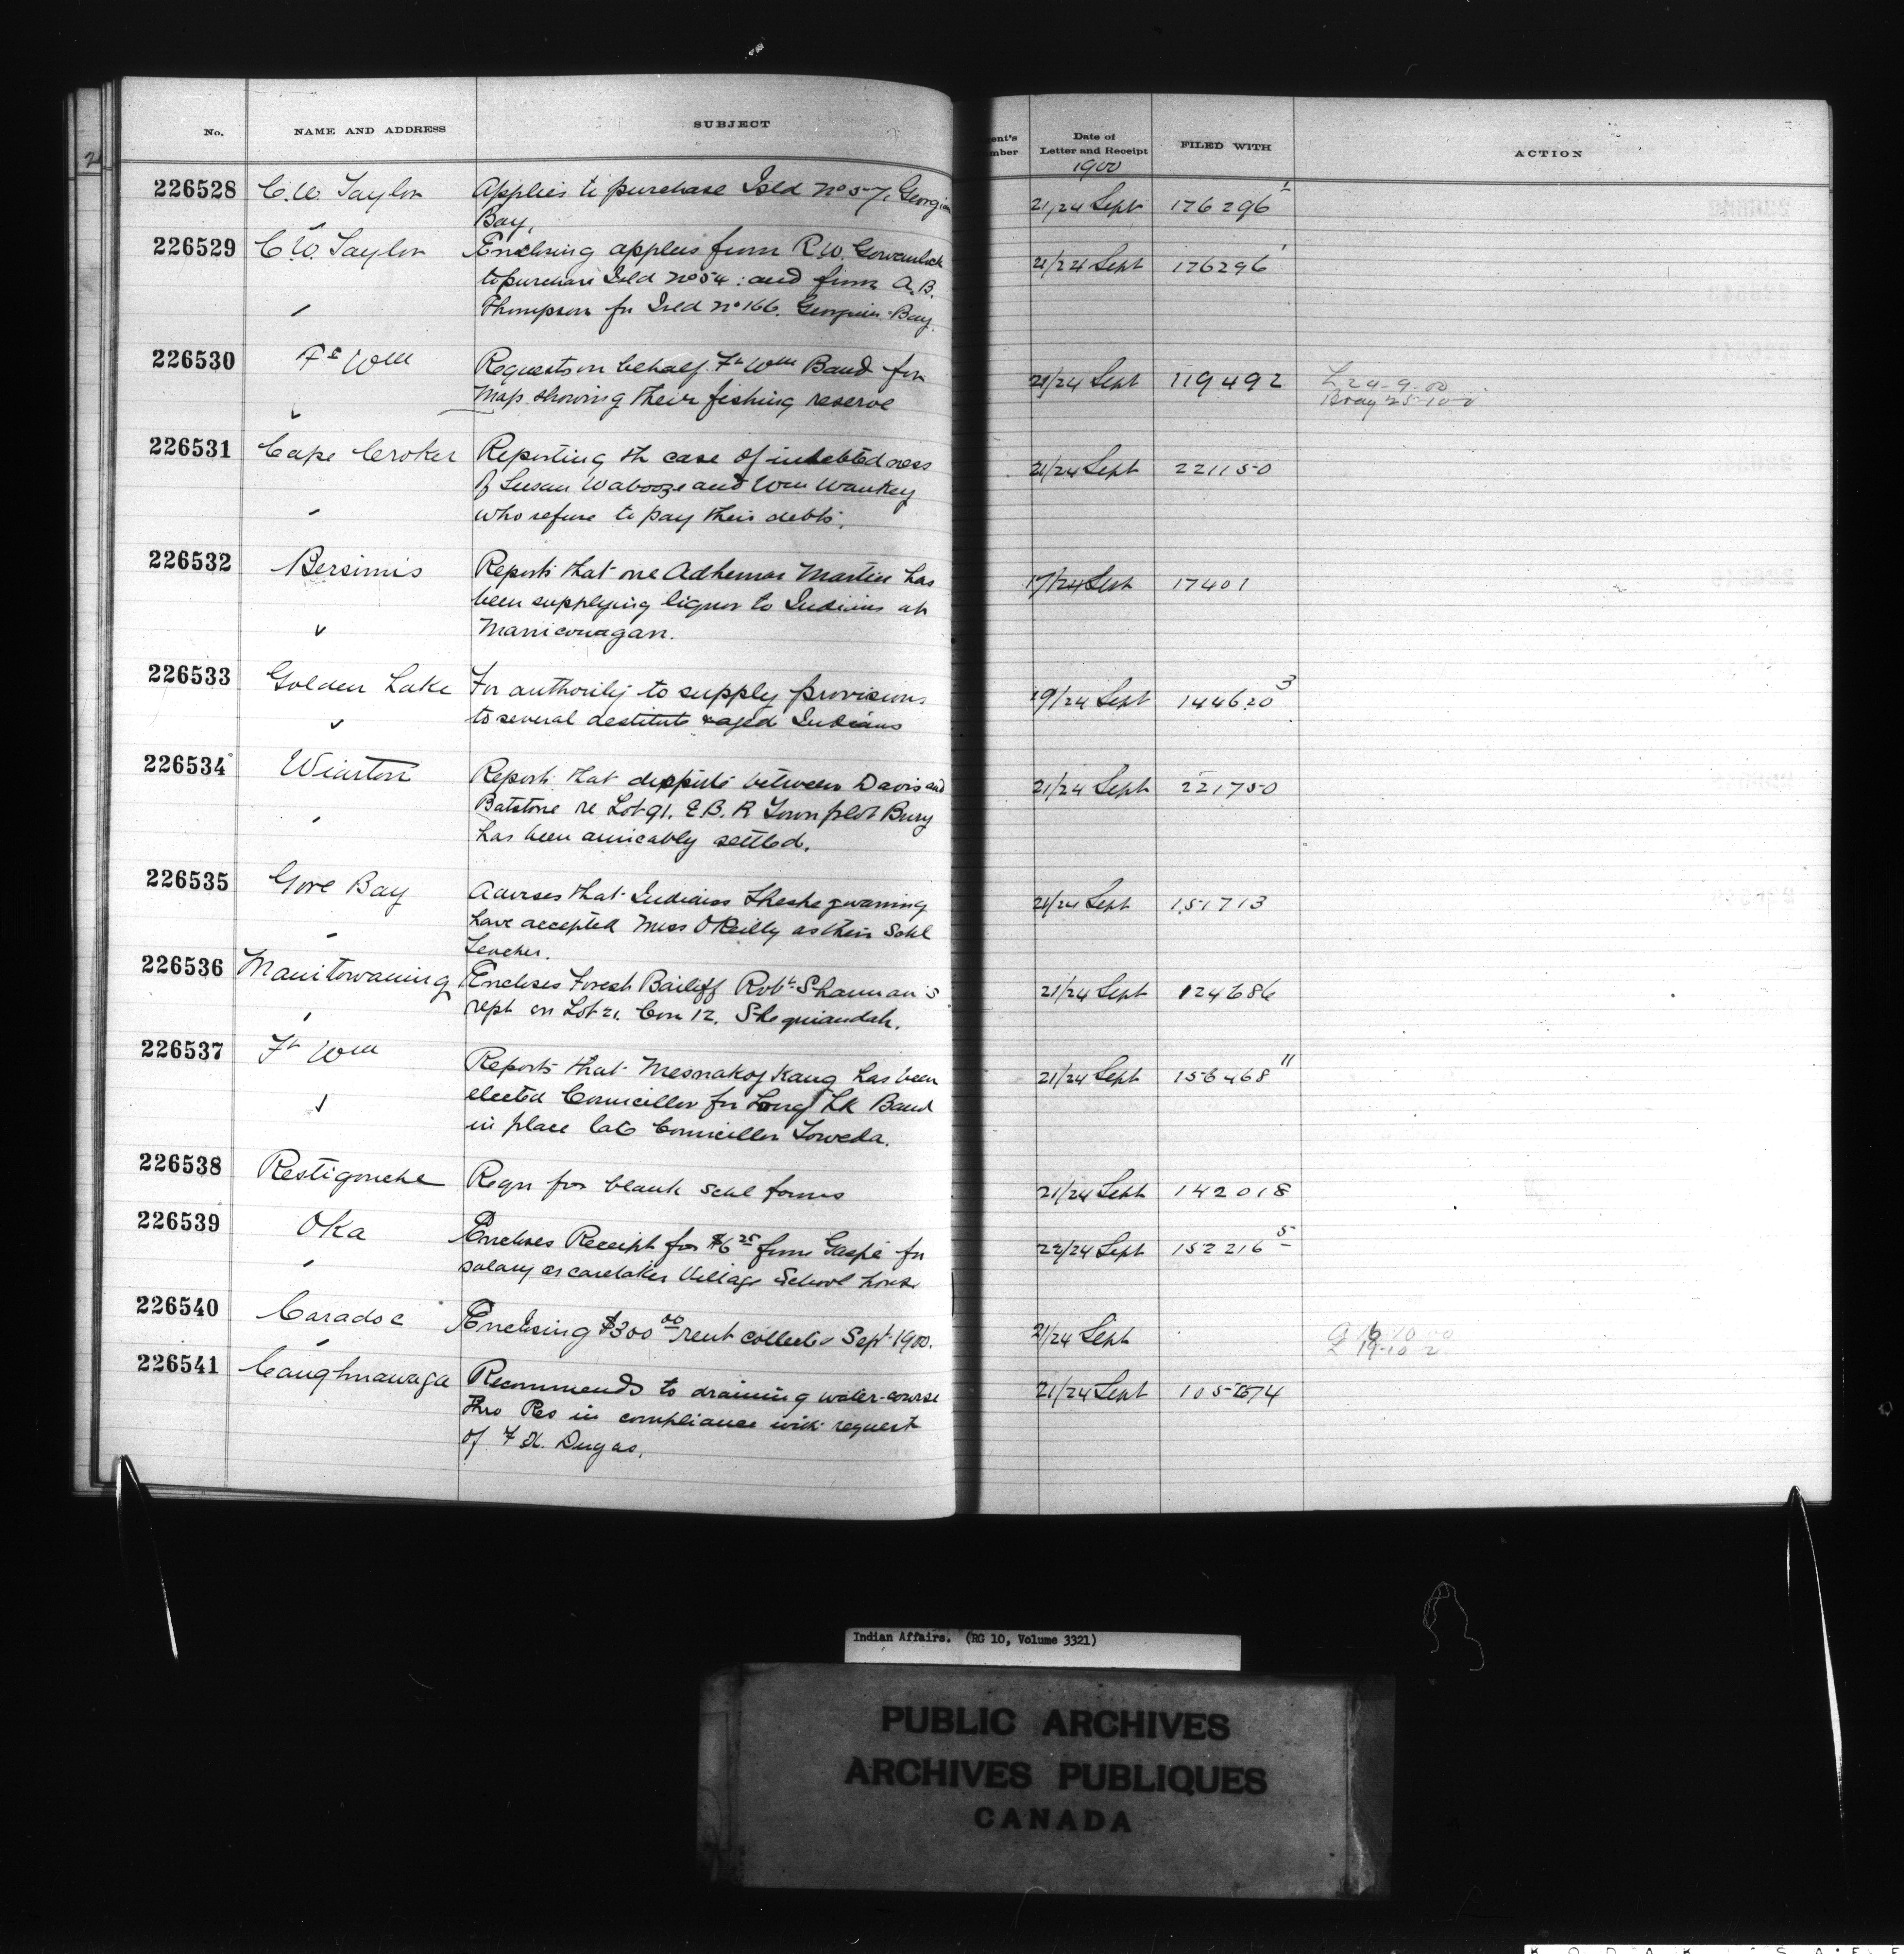 No. NAME AND ADDRESS SUBJECT
Date of Letter and Receipt FILED WITH ACTION
1900
226528 C.W. Taylor Applies to purchase Isld No 57, Georgian 21/24 Sept 176296 1
Bay.
226529 C.W. Taylor Enclosing applns from R.W. Gowanlock 21/24 Sept 176296 1
to purchase Isld No 54: and from A.B.
Thompson for Isld No 166. Georgian Bay.
226530 Ft Wm Requests on behalf Ft Wm Band for 21/24 Sept 119492 L 24-9-00
Map showing their fishing reserve Bray 25-10-0
226531 Cape Croker Reporting th case of indebtedness 21/24 Sept 221150
of Susan Wabooze and Wm Waukey
who refuse to pay their debts.
226532 Bersimis Reports that one Adhemar Martin has 17/24 Sept 17401
been supplying liquor to Indians at
Manicouagan.
226533 Golden Lake For authority to supply provisions 19/24 Sept 144620 3
to several destitute & aged Indians
226534 Wiarton Reports that dispute between Davis and 21/24 Sept 221750
Batstone re Lot 91. E.B.R Townplot Bury
has been amicably settled.
226535 Gore Bay Advises that Indians Sheshegwaning 21/24 Sept 151713
have accepted Miss O'Reilly as their Schl
Teacher.
226536 Manitowaning Encloses Forest Bailiff Robt Shannan's 21/24 Sept 124686
rept on Lot 21. Con 12. Sheguiandah.
226537 Ft Wm Reports that Mesnakoj Kang has been 21/24 Sept 156468 11
elected Councillor for Long Lk Band
in place late Councillor Toweda.
226538 Restigouche Reqn for blank schl forms 21/24 Sept 142018
226539 Oka Encloses Receipt for $6 25 from Gaspé for 22/24 Sept 152216 5
salary as caretaker Village School house
226540 Caradoc Enclosing $300 00 rent collected Sept 1900. 21/24 Sept
226541 Caughnawaga Recommends to draining water-course 21/24 Sept
thro Res in compliance with request
of F X. Dugas.
Indian Affairs. (RG 10, Volume 3321)
PUBLIC ARCHIVES
ARCHIVES PUBLIQUES
CANADA